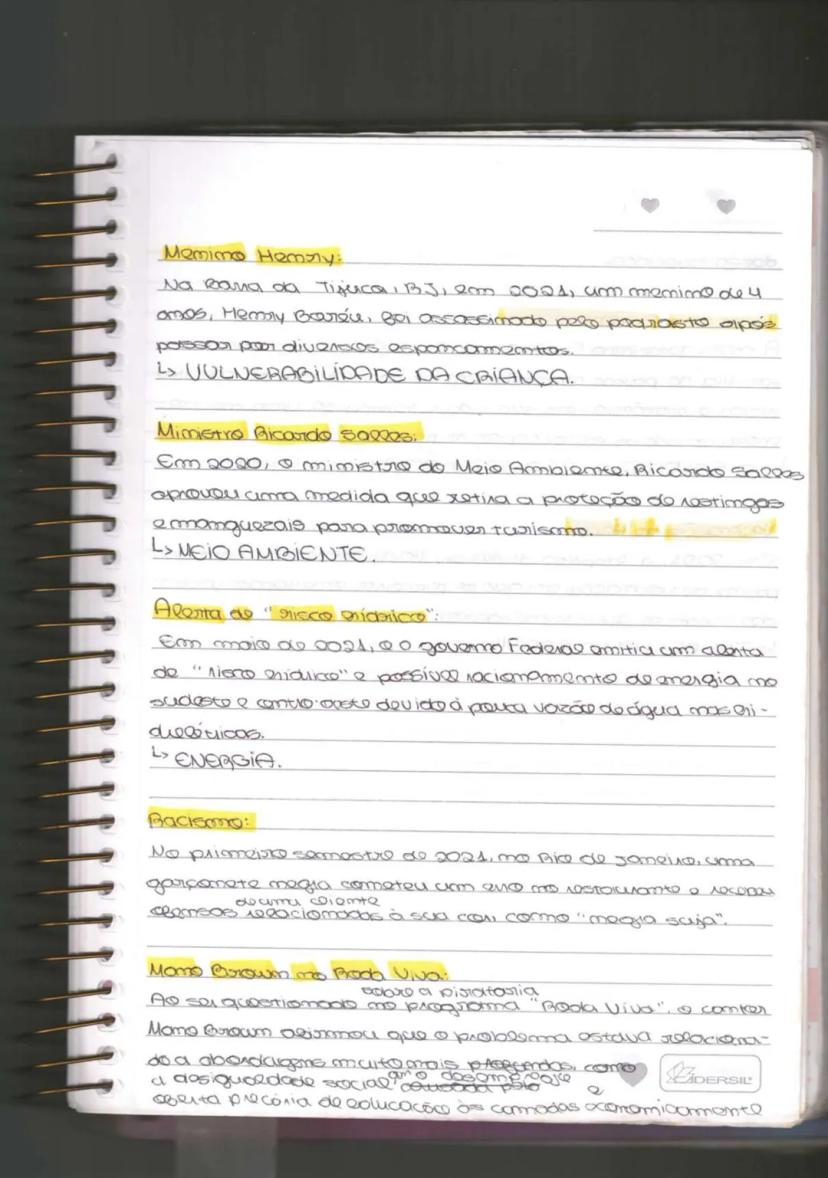 Menino Henry:
Na Barra da Tijuca, RJ, em 2021, um menino de 4
anos, Henry Boréu, foi assassinado pelo padrasto após
passar por diversos espancamentos.
↳ VULNERABILIDADE DA CRIANÇA.
Ministro Ricardo Salles:
Em 2020, o ministro do Meio Ambiente, Ricardo Salles
aprovou uma medida que retira a proteção de restingas
e manguezais para promover turismo.
↳ MEIO AMBIENTE.
Alerta de "risco hídrico":
Em maio de 2021, o governo Federal emitiu um alerta
de "risco hídrico" e possível racionamento de energia no
sudeste e centro-oeste devido à pouca vazão de água nas hi-
drelétricas.
↳ ENERGIA.
Racismo:
No primeiro semestre de 2021, no Rio de Janeiro, uma
garçonete negra cometeu um erro no restaurante e recebeu
de uma cliente
ofensas relacionadas à sua cor, como "negra suja".
Mano Brown no Roda Viva:
sobre a pirataria
Ao ser questionado no programa "Roda Viva", o cantor
Mano Brown afirmou que o problema estava relaciona-
do a abordagens muito mais profundas, como
a desigualdade social, o desemprego e
oferta precária de educação às camadas economicamente
IDERSIL